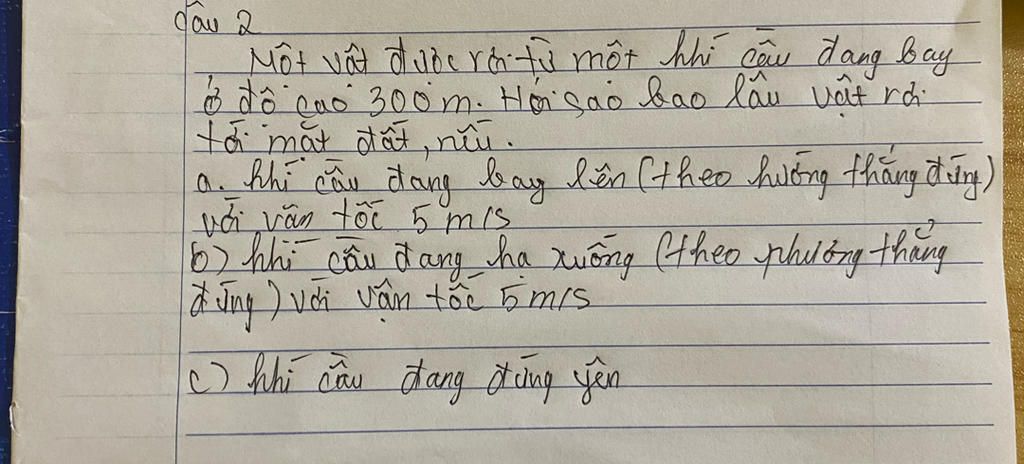 Câu 2
Một vật được rơi từ một khí cầu đang bay
ở độ cao 300 m. Hỏi sao bao lâu vật rơi
tới mặt đất, nếu.
a. khí cầu đang bay lên (theo hướng thẳng đứng)
với vân tốc 5 m/s
b) khí cầu đang hạ xuống (theo phương thẳng
đứng) với vận tốc 5 m/s
c) khí cầu đang đứng yên